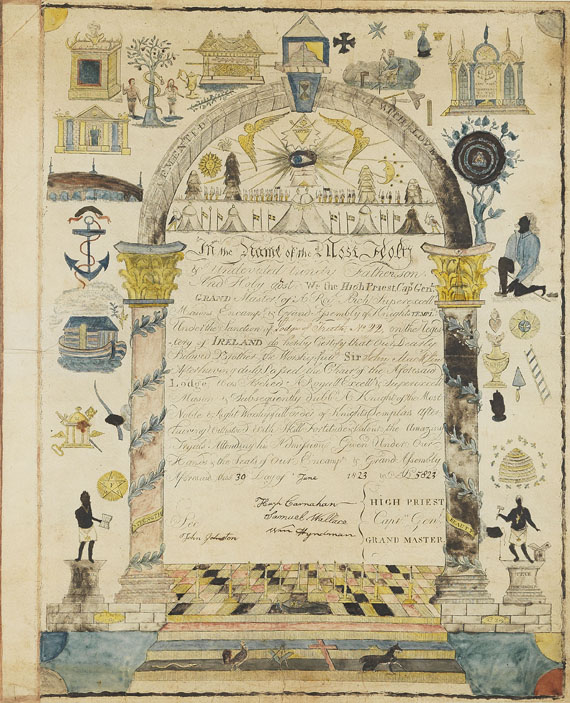 CEMENTED WITH LOVE
In the Name of the Most Holy
& Undivided Trinity Father Son
And Holy Gost We the High Priest Cap Genl
GRAND Master of A Roy Arch Superexcell
Masons Encamp & Grand Assembly of Knights TEMPl
Under the Sanction of Lodge of Truth No 22 on the Regis
try of IRELAND do hereby Certify that Our Dearly
Beloved Brother the Worshipfull Sir John
After having duly Passed the Chair of the Aforesaid
Lodge Was Arched A Royall Excellt & Superexcell
Mason & Subsequently Dubb'd A Knight of the Most
Noble & Right Worshipfull Order of Knights Templars After
having With Skill Fortitude & Valour the Amazing
Tryals Attending his Admission Given Under Our
Hands & the Seals of Our Encampt & Grand Assembly
Aforesaid this 30 Day of June 1823 & 5823
Hugh Carnahan HIGH PRIEST
Samuel Wallace Captn Genl
Wm Hyndman GRAND MASTER
John Johnston
STRENGTH
BEAUTY